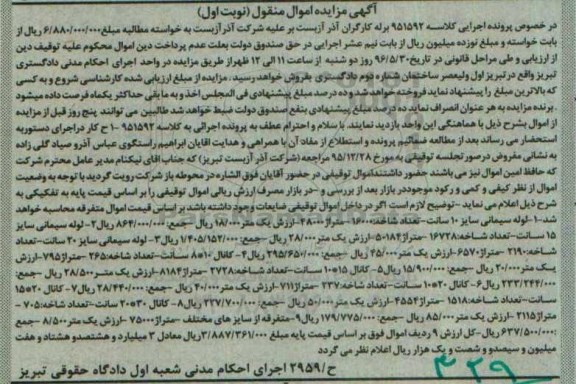 آگهی مزایده اموال منقول (نوبت اول)
در خصوص پرونده اجرایی کلاسه ۹۵۱۵۹۲ برله کارگران آذر آزبست بر علیه شرکت آذر آزبست به خواسته مطالبه مبلغ ۶/۸۸۰/۰۰۰/۰۰۰ ریال از
بابت خواسته و مبلغ نوزده میلیون ریال از بابت نیم عشر اجرایی در حق صندوق دولت بعلت عدم پرداخت دین اموال محکوم علیه توقیف دین
از ارزیابی و طی مراحل قانونی در تاریخ ۹۶/۵/۳۰ روز دو شنبه از ساعت ۱۱ الی ۱۲ ظهر از طریق مزایده در واحد اجرای احکام مدنی دادگستری
تبریز واقع در تبریز اول ولیعصر ساختمان شماره دوم دادگستری بفروش خواهد رسید. مزایده از مبلغ ارزیابی شده کارشناسی شروع و به کسی
که بالاترین مبلغ را پیشنهاد نماید فروخته خواهد شد و ده درصد مبلغ پیشنهادی فی المجلس اخذ و به مابقی حداکثر یکماه فرصت داده میشود
. برنده مزایده به هر عنوان انصراف نماید ده درصد مبلغ پیشنهادی بنفع صندوق دولت ضبط خواهد شد طالبین می توانند پنج روز قبل از مزایده
از اموال بشرح ذیل با هماهنگی این واحد بازدید نمایند. با سلام و احترام عطف به پرونده اجرائی به کلاسه ۹۵۱۵۹۲ -۱ ح کار دراجرای دستوریه
استحضار می رساند بعد از مطالعه ضمائم پرونده و استطلاع از مفاد آن با همراهی و هدایت اقایان ابراهیم راستگوی عباس آذرو صیاد گلی زاده
به نشانی مفروض درصورتجلسه توقیفی به مورخ ۹۵/۱۲/۲۸ مراجعه (شرکت آذر آزبست تبریز) که جناب اقای نیکنام مدیر عامل محترم شرکت
که حافظ امین اموال نیز می باشند حضور داشتند اموال توقیفی در حضور آقایان فوق الشاره در محوطه باز شرکت رویت گردید با توجه به وضعیت
اموال از نظر کیفی و کمی و رکود موجود در بازار بعد از بررسی و -در بازار مصرف ارزش ریالی اموال توقیفی را بر اساس قیمت پایه به تفکیکی به
شرح ذیل اعلام می نماید -توضیح لازم است اگر در داخل اموال توقیفی ضایعات وجود داشته باشد بر اساس قیمت اموال متفرقه محاسبه خواهد
شد-۱-لوله سیمانی سایز ۱۰ سانت-تعداد شاخه:۱۶۰۰۰ -متراژ:۴۸۰۰۰-ارزش یک متر ۱۸/۰۰۰ ریال -جمع: ۸۶۴/۰۰۰/۰۰۰ ریال۲- لوله سیمانی سایز
۱۵ سانت-تعداد شاخه:۱۶۷۲۸ -متراژ:۵۰۱۸۴-ارزش یک متر ۲۸/۰۰۰ ریال-جمع: ۱/۴۰۵/۱۵۲/۰۰۰ ریال ۳- لوله سیمانی سایز ۲۰ سانت-تعداد
شاخه: ۲۱۹۰ -متراژ:۶۵۷۰-ارزش یک متر ۴۵/۰۰۰ ریال -جمع: ۲۹۵/۶۵۰/۰۰۰ ریال ۴- کانال ۱۰*۸ سانت-تعداد شاخه: ۲۶۵ -متراژ:۷۹۵-ارزش
یک متر ۲۰/۰۰۰ ریال -جمع: ۱۵/۹۰۰/۰۰۰ ریال۵- کانال ۱۵*۱۰ سانت-تعداد شاخه: ۲۷۲۸ -متراژ:۸۱۸۴-ارزش یک متر ۲۸/۵۰۰ ریال -جمع:
۲۳۳/۲۴۴/۰۰۰ ریال۶- کانال ۲۰*۱۰ سانت-تعداد شاخه: ۲۳۷ -متراژ:۷۱۱-ارزش یک متر ۴۰/۰۰۰ ریال -جمع: ۲۸/۴۴۰/۰۰۰ ریال۷- کانال ۲۰*۱۵
سانت-تعداد شاخه: ۱۵۱۸ -متراژ:۴۵۵۴-ارزش یک متر ۵۰/۰۰۰ ریال -جمع: ۲۲۷/۷۰۰/۰۰۰ ریال۸- کانال ۳۰*۲۰ سانت-تعداد شاخه: ۷۰۵ -
متراژ:۲۱۱۵-ارزش یک متر ۸۵/۰۰۰ ریال -جمع: ۱۷۹/۷۷۵/۰۰۰ ریال۹-متفرقه از سایز های مختلف -متراژ:۷۵۰۰۰ -ارزش یک متر ۸/۵۰۰ -جمع
:۶۳۷/۵۰۰/۰۰۰ ریال-کل ارزش ۹ ردیف اموال فوق بر اساس قیمت پایه مبلغ ۳/۸۸۷/۳۶۱/۰۰۰ ریال معادل ۳ میلیارد و هشتصد و هشتاد و هفت
میلیون و سیصد و شصت و یک هزار ریال اعلام نظر می گردد
ح/۲۹۵۹ اجرای احکام مدنی شعبه اول دادگاه حقوقی تبریز
۳۲۹